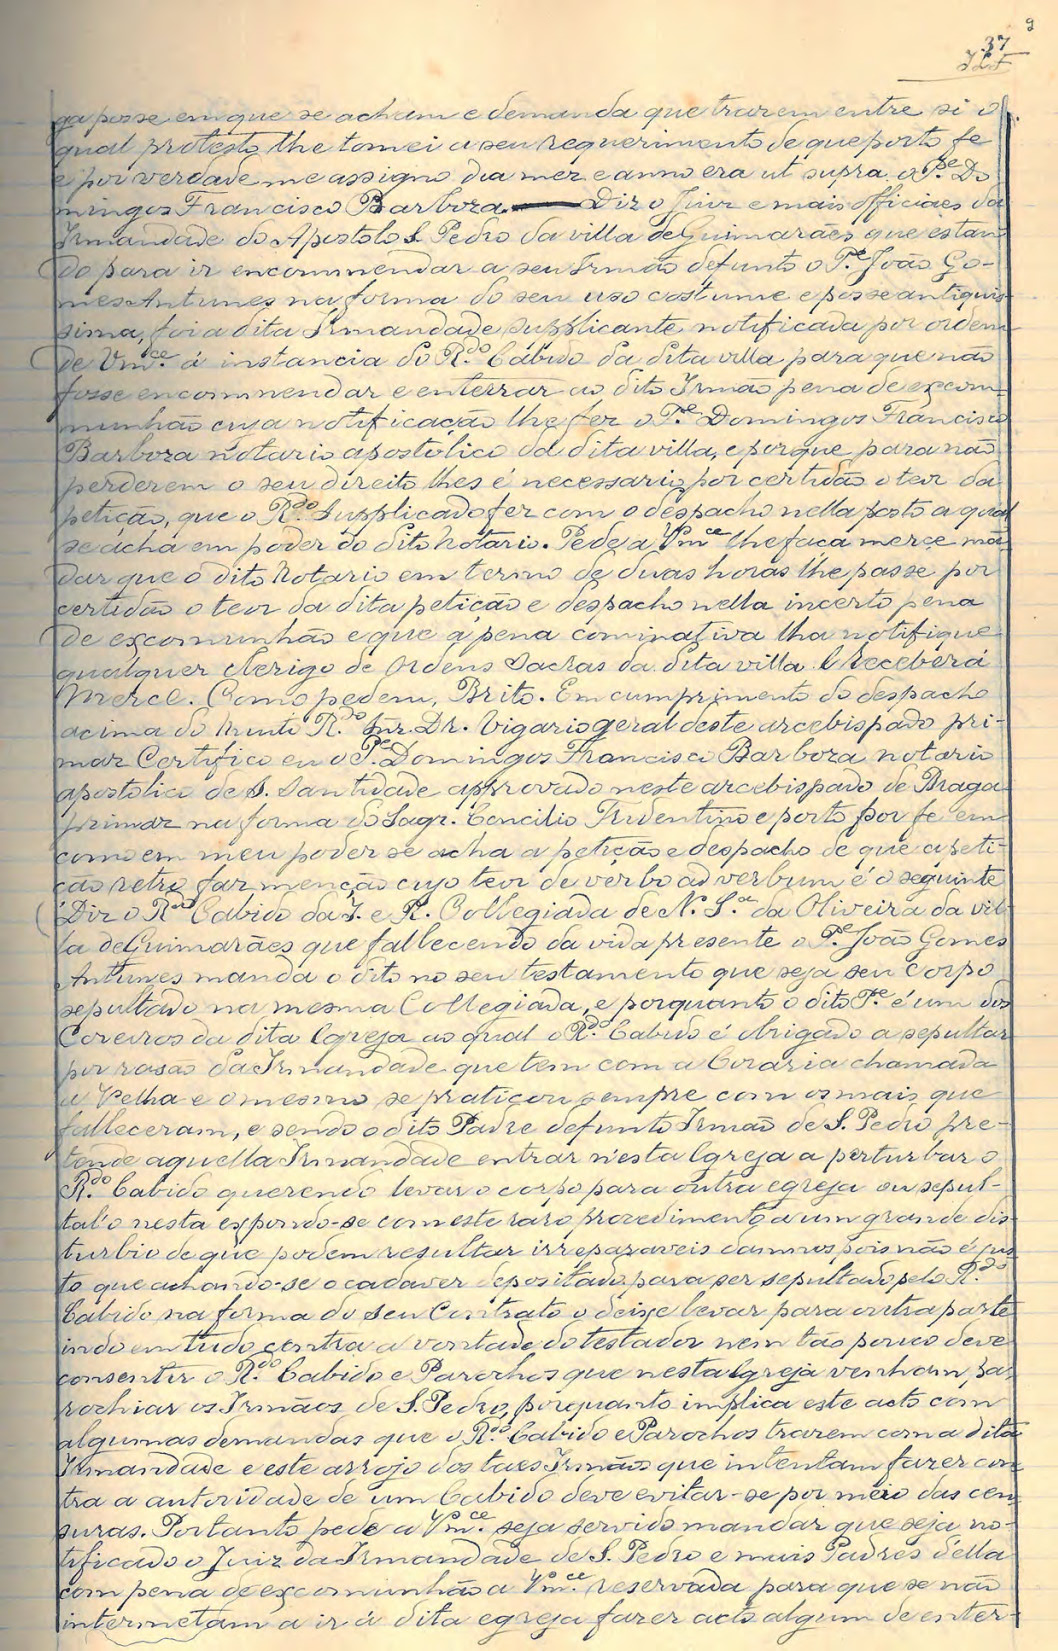 9
37
ga posse em que se acham e demanda que trazem entre si o
qual protesto lhe tomei a seu requerimento de que porto fe
e por verdade me assigno dia mez e anno era ut supra. o P.e Do
mingos Francisco Barboza. — Diz o Juiz e mais officiaes da
Irmandade do Apostolo S. Pedro da villa de Guimarães que estan
do para ir encommendar a seu Irmão defunto o P.e João Go-
mes Antunes na forma do seu uso costume e posse antiquis-
sima, foi a dita Irmandade supplicante notificada por ordem
de Vm.ce á instancia do R.do Cabido da dita villa para que não
fosse encommendar e enterrar ao dito Irmão pena de excom-
munhão cuja notificação lhe fez o P.e Domingos Francisco
Barboza notario apostolico da dita villa, e porque para não
perderem o seu direito lhes é necessario por certidão o teor da
petição, que o R.do Supplicado fez com o despacho nella posto a qual
se acha em poder do dito Notario. Pede a Vm.ce lhe faça merce man
dar que o dito Notario em termo de duas horas lhe passe por
certidão o teor da dita petição e despacho nella incerto pena
de excomunhão e que a pena cominativa lha notifique
qualquer clerigo de Ordens Sacras da dita villa. E Receberá
Merce. Como pedem, Brito. Em cumprimento do despacho
acima do Muito R.do Snr. Dr. Vigario geral deste arcebispado pri-
maz Certifico eu o P.e Domingos Francisco Barboza notario
apostolico de S. Santidade approvado neste arcebispado de Braga
primaz na forma do Sagr. Concilio Tridentino e porto por fe em
como em meu poder se acha a petição e despacho de que a peti-
ção retro faz menção cujo teor de verbo ad verbum é o seguinte
Diz o R.do Cabido da I. e R. Collegiada de N. S.a da Oliveira da vil-
la de Guimarães que fallecendo da vida presente o P.e João Gomes
Antunes manda o dito no seu testamento que seja seu corpo
sepultado na mesma Collegiada, e porquanto o dito P.e é um dos
Coreiros da dita Igreja ao qual o R.do Cabido é obrigado a sepultar
por rasão da Irmandade que tem com a Coraria chamada
a Velha e o mesmo se praticou sempre com os mais que
falleceram, e sendo o dito Padre defunto Irmão de S. Pedro pre-
tende aquella Irmandade entrar n'esta Igreja a perturbar o
R.do Cabido querendo levar o corpo para outra egreja ou sepul-
tal'o nesta expondo-se com este raro procedimento a um grande dis-
turbio de que podem resultar irreparaveis damnos pois não é jus
to que achando-se o cadaver depositado para ser sepultado pelo R.do
Cabido na forma do seu Contrato o deixe levar para outra parte
indo em tudo contra a vontade do testador nem tão pouco deve
consentir o R.do Cabido e Parochos que nesta Igreja venham pa-
rochiar os Irmãos de S. Pedro, porquanto implica este acto com
algumas demandas que o R.do Cabido e Parochos trazem com a dita
Irmandade e este arrojo dos taes Irmãos que intentam fazer con
tra a autoridade de um Cabido deve evitar-se por meio das cen
suras. Portanto pede a Vm.ce seja servido mandar que seja no-
tificado o Juiz da Irmandade de S. Pedro e mais Padres d'ella
com pena de excomunhão a Vm.ce reservada para que se não
intermetam a ir á dita egreja fazer acto algum de enter-